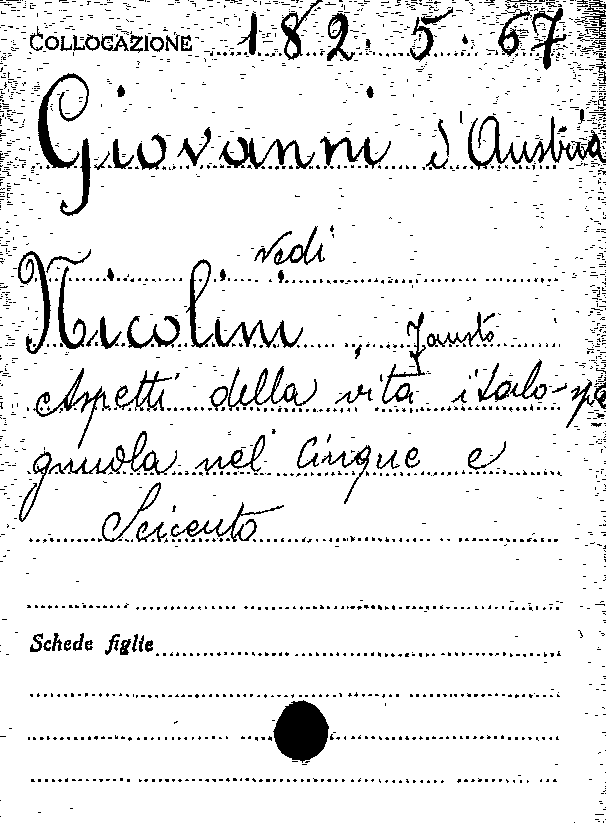 COLLOCAZIONE 182.5.67
Giovanni d'Austria
vedi
Nicolini, Fausto
Aspetti della vita italo-spa
gnuola nel Cinque e
Seicento
Schede figlie